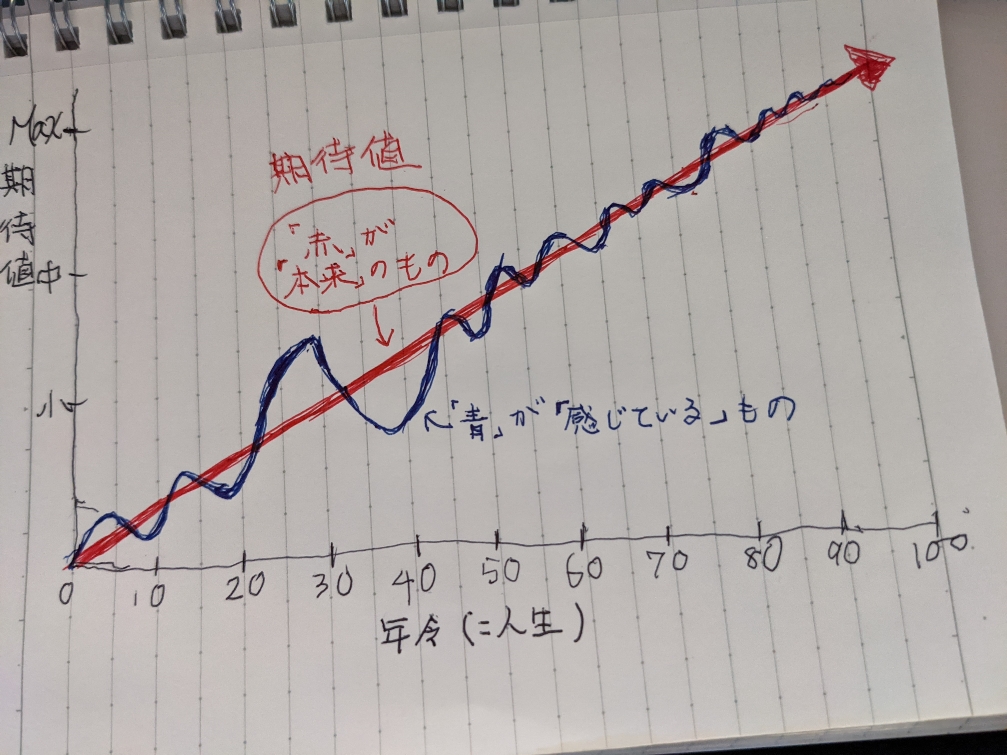 Max
期
待
値
中
小
期待値
「赤」が
「本来」のもの
「青」が「感じている」もの
0 10 20 30 40 50 60 70 80 90 100
年令(=人生)